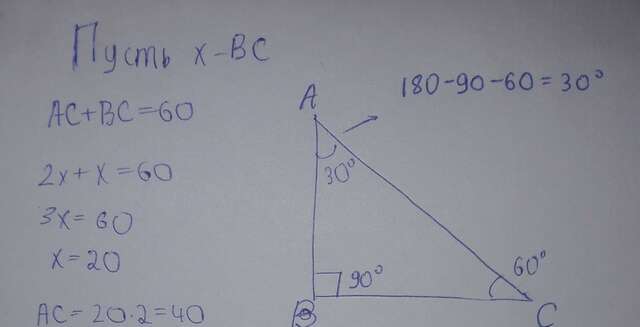 Пусть x - BC
AC+BC=60
2x+x=60
3x=60
x=20
AC=20·2=40
180-90-60=30°
A
30°
90°
60°
B
C